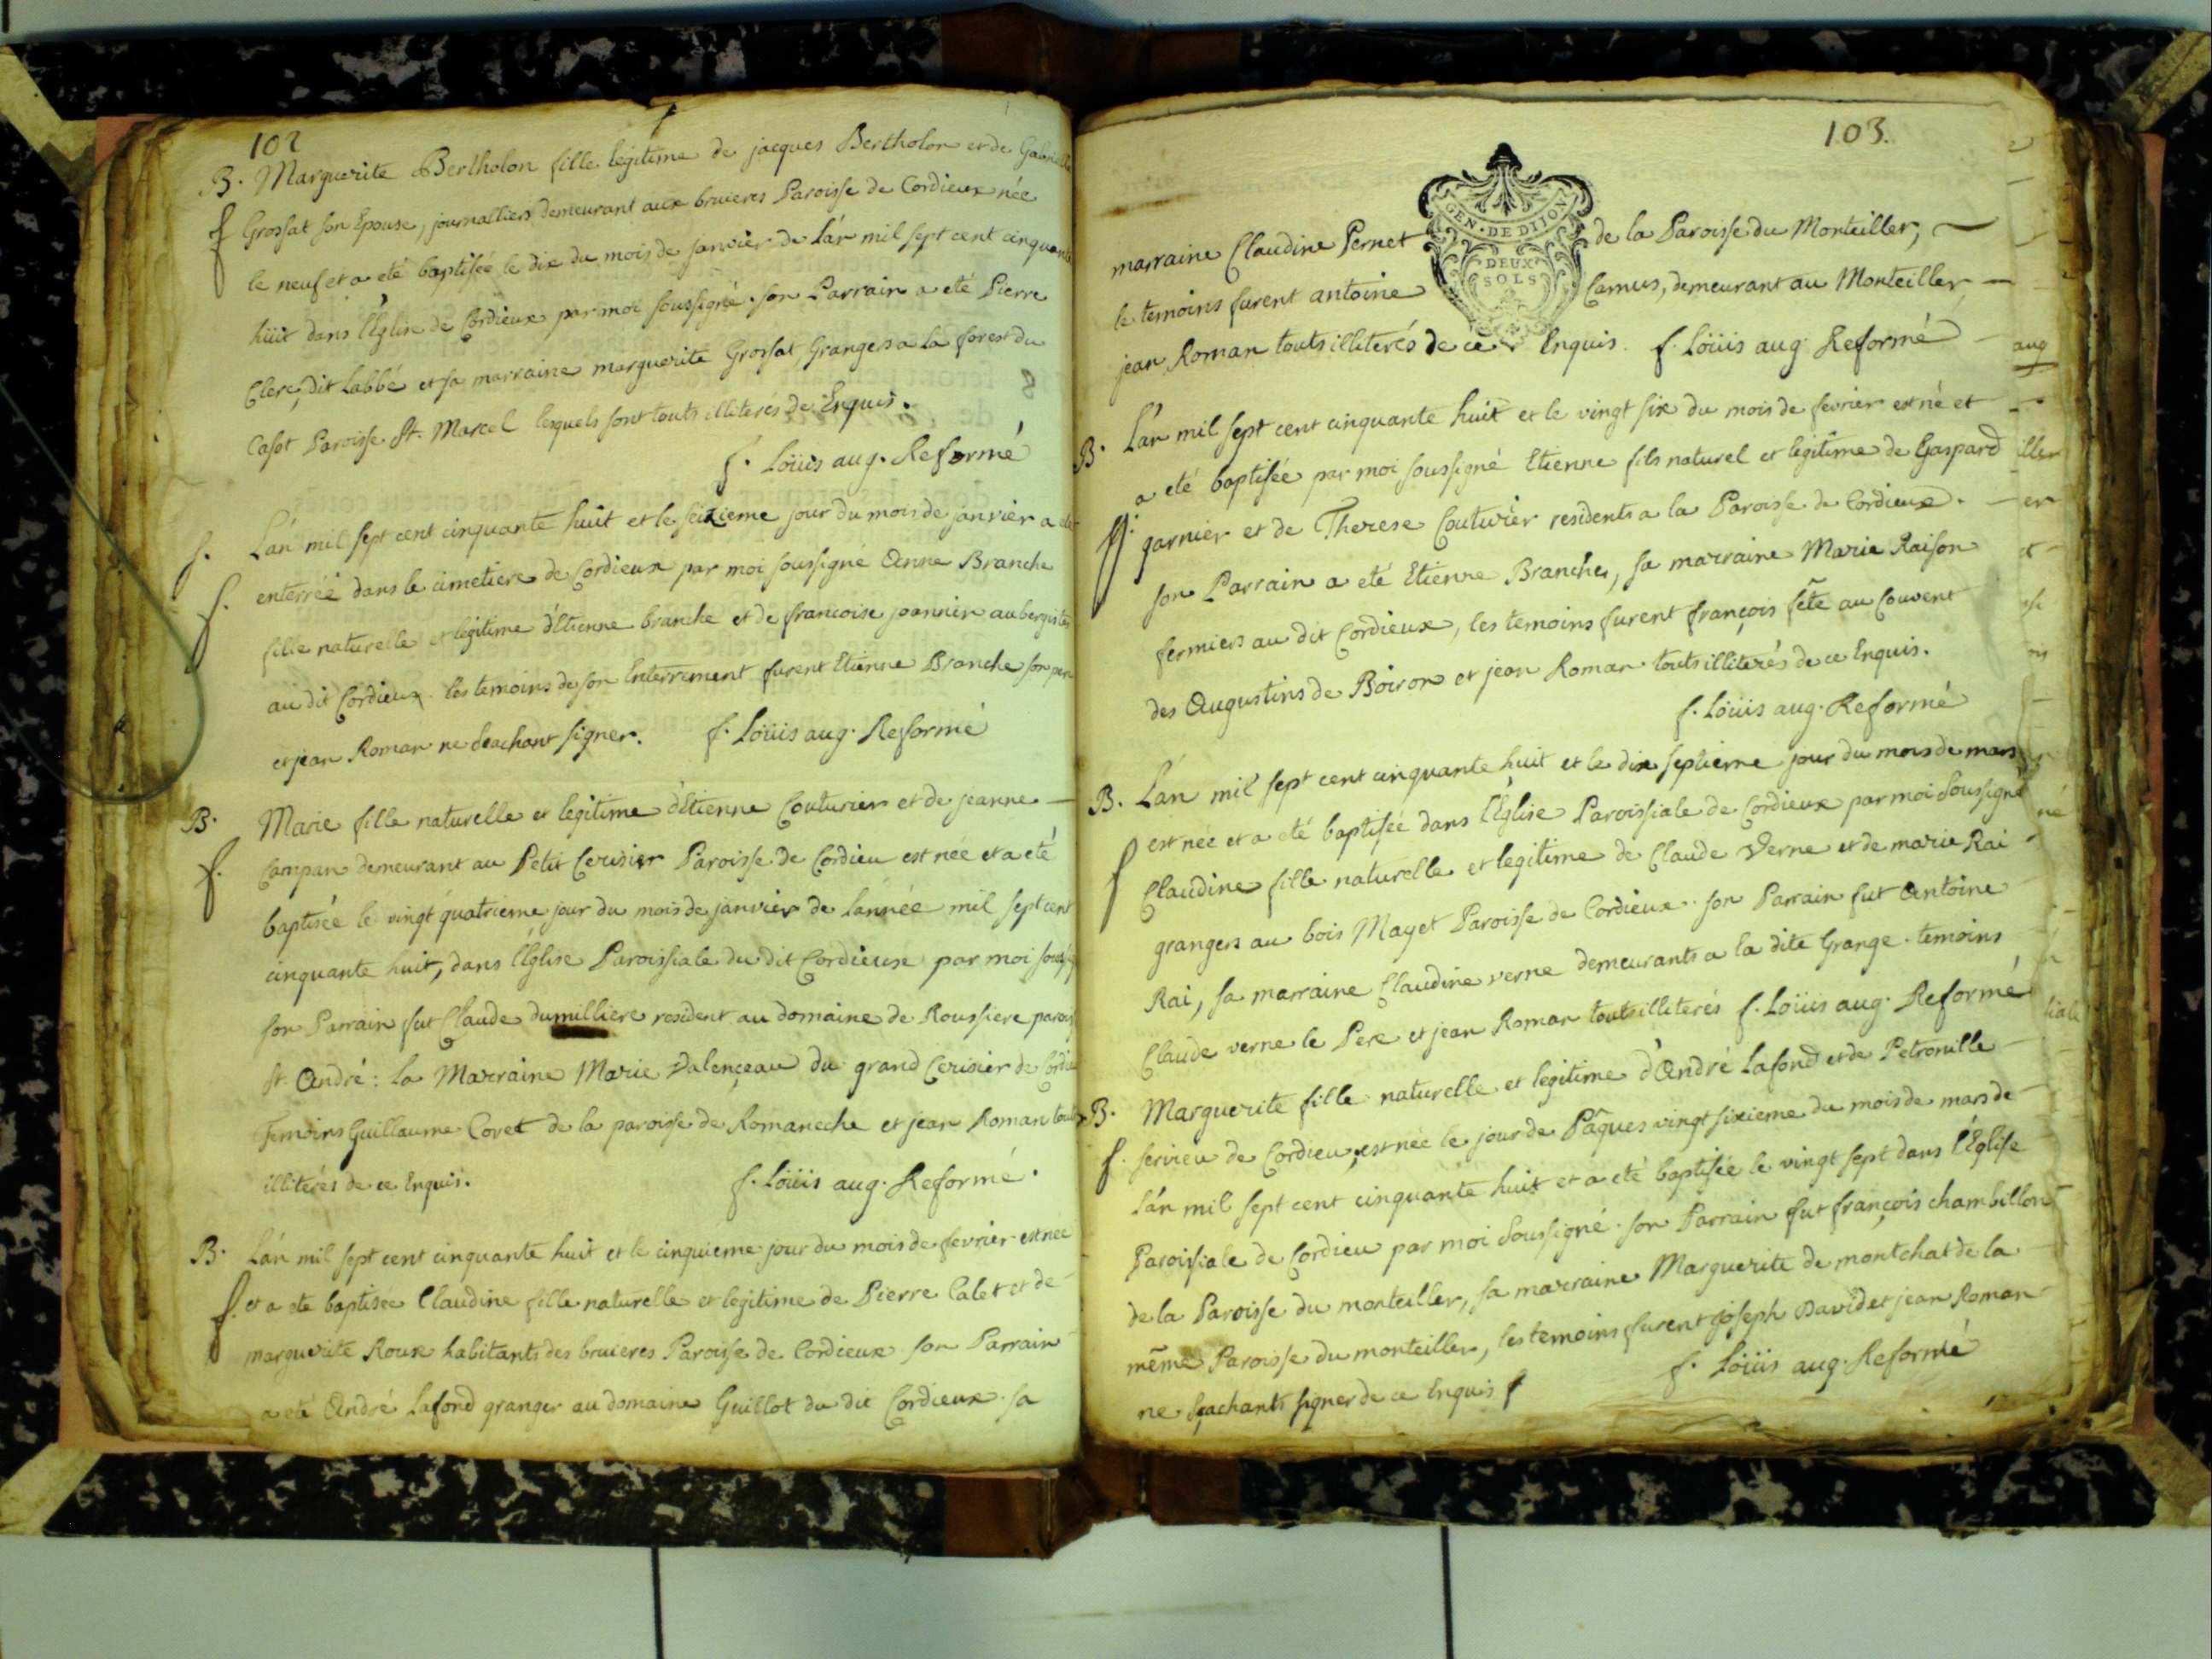 102
B. Marguerite Bertholon fille légitime de jacques Bertholon et de Gabrielle
f Grossat son Epouse, journalliers demeurant aux bruieres Paroisse de Cordieux née
le neuf et a eté baptisée le dix du mois de janvier de L'an mil sept cent cinquante
huit dans l'Eglise de Cordieux par moi soussigné. son Parrain a eté Pierre
Clerc, dit Labbé et sa marraine marguerite Grossat, Grangers a la forest du
Casot Paroisse St. Marcel lesquels sont touts illiterés de Enquis.
f. Loüis aug. Reformé
f. L'an mil sept cent cinquante huit et le seizieme jour du mois de janvier a eté
f. enterrée dans le cimetiere de Cordieux par moi soussigné Anne Branche
fille naturelle et légitime d'Etienne branche et de francoise joannin aubergistes
au dit Cordieux. les temoins de son Enterrement furent Etienne Branche son pere
et jean Roman ne sçachant signer. f. Loüis aug. Reformé
B. Marie fille naturelle et legitime d'Etienne Couturier et de jeanne
f. Campan demeurant au Petit Cerisier Paroisse de Cordieu est née et a eté
baptisée le vingt quatrieme jour du mois de janvier de lannée mil sept cent
cinquante huit, dans l'Eglise Paroissiale du dit Cordieux par moi
son Parrain fut Claude dumilliere resident au domaine de Roussiere
St. André: la Marraine Marie Valençeau du grand Cerisier de
Temoins Guillaume Covet de la paroisse de Romaneche et jean Roman touts
illiterés de ce Enquis. f. Loüis aug. Reformé.
B. L'an mil sept cent cinquante huit et le cinquieme jour du mois de fevrier est née
f. et a eté baptisée Claudine fille naturelle et legitime de Pierre Calet et de
marguerite Roux habitants des bruieres Paroisse de Cordieux son Parrain
a eté André Lafond granger au domaine Guillot du dit Cordieux. sa
103.
GEN. DE DIJON
DEUX
SOLS
marraine Claudine Pernet de la Paroisse du Monteiller,
le temoins furent antoine Camus, demeurant au Monteiller
jean Roman touts illiterés de ce Enquis. f. Loüis aug. Reformé
B. L'an mil sept cent cinquante huit et le vingt six du mois de fevrier est né et
a eté baptisée par moi soussigné Etienne fils naturel et legitime de Gaspard
garnier et de Therese Couturier residents a la Paroisse de Cordieux.
son Parrain a eté Etienne Branche, sa marraine Marie Raison
fermiers au dit Cordieux, les temoins furent françois fête au Couvent
des Augustins de Boiron et jean Roman touts illiterés de ce Enquis.
f. Loüis aug. Reformé
B. L'an mil sept cent cinquante huit et le dix septieme jour du mois de mars
est née et a eté baptisée dans l'Eglise Paroissiale de Cordieux par moi soussigné
f Claudine fille naturelle et legitime de Claude Verne et de marie Rai
grangers au bois Mayet Paroisse de Cordieux. son Parrain fut Antoine
Rai, sa marraine Claudine verne demeurants a la dite Grange. temoins
Claude verne le Pere et jean Roman touts illiterés f. Loüis aug. Reformé
B. Marguerite fille naturelle et legitime d'André Lafond et de Petronille
f. servieu de Cordieu, est née le jour de Pâques vingt sixieme du mois de mars de
l'an mil sept cent cinquante huit et a eté baptisée le vingt sept dans l'Eglise
Paroissiale de Cordieu par moi soussigné. son Parrain fut françois chambillon
de la Paroisse du monteiller, sa marraine Marguerite de montchat de la
même Paroisse du monteiller, les temoins furent joseph David et jean Roman
ne sçachants signer de ce Enquis f. Loüis aug. Reformé